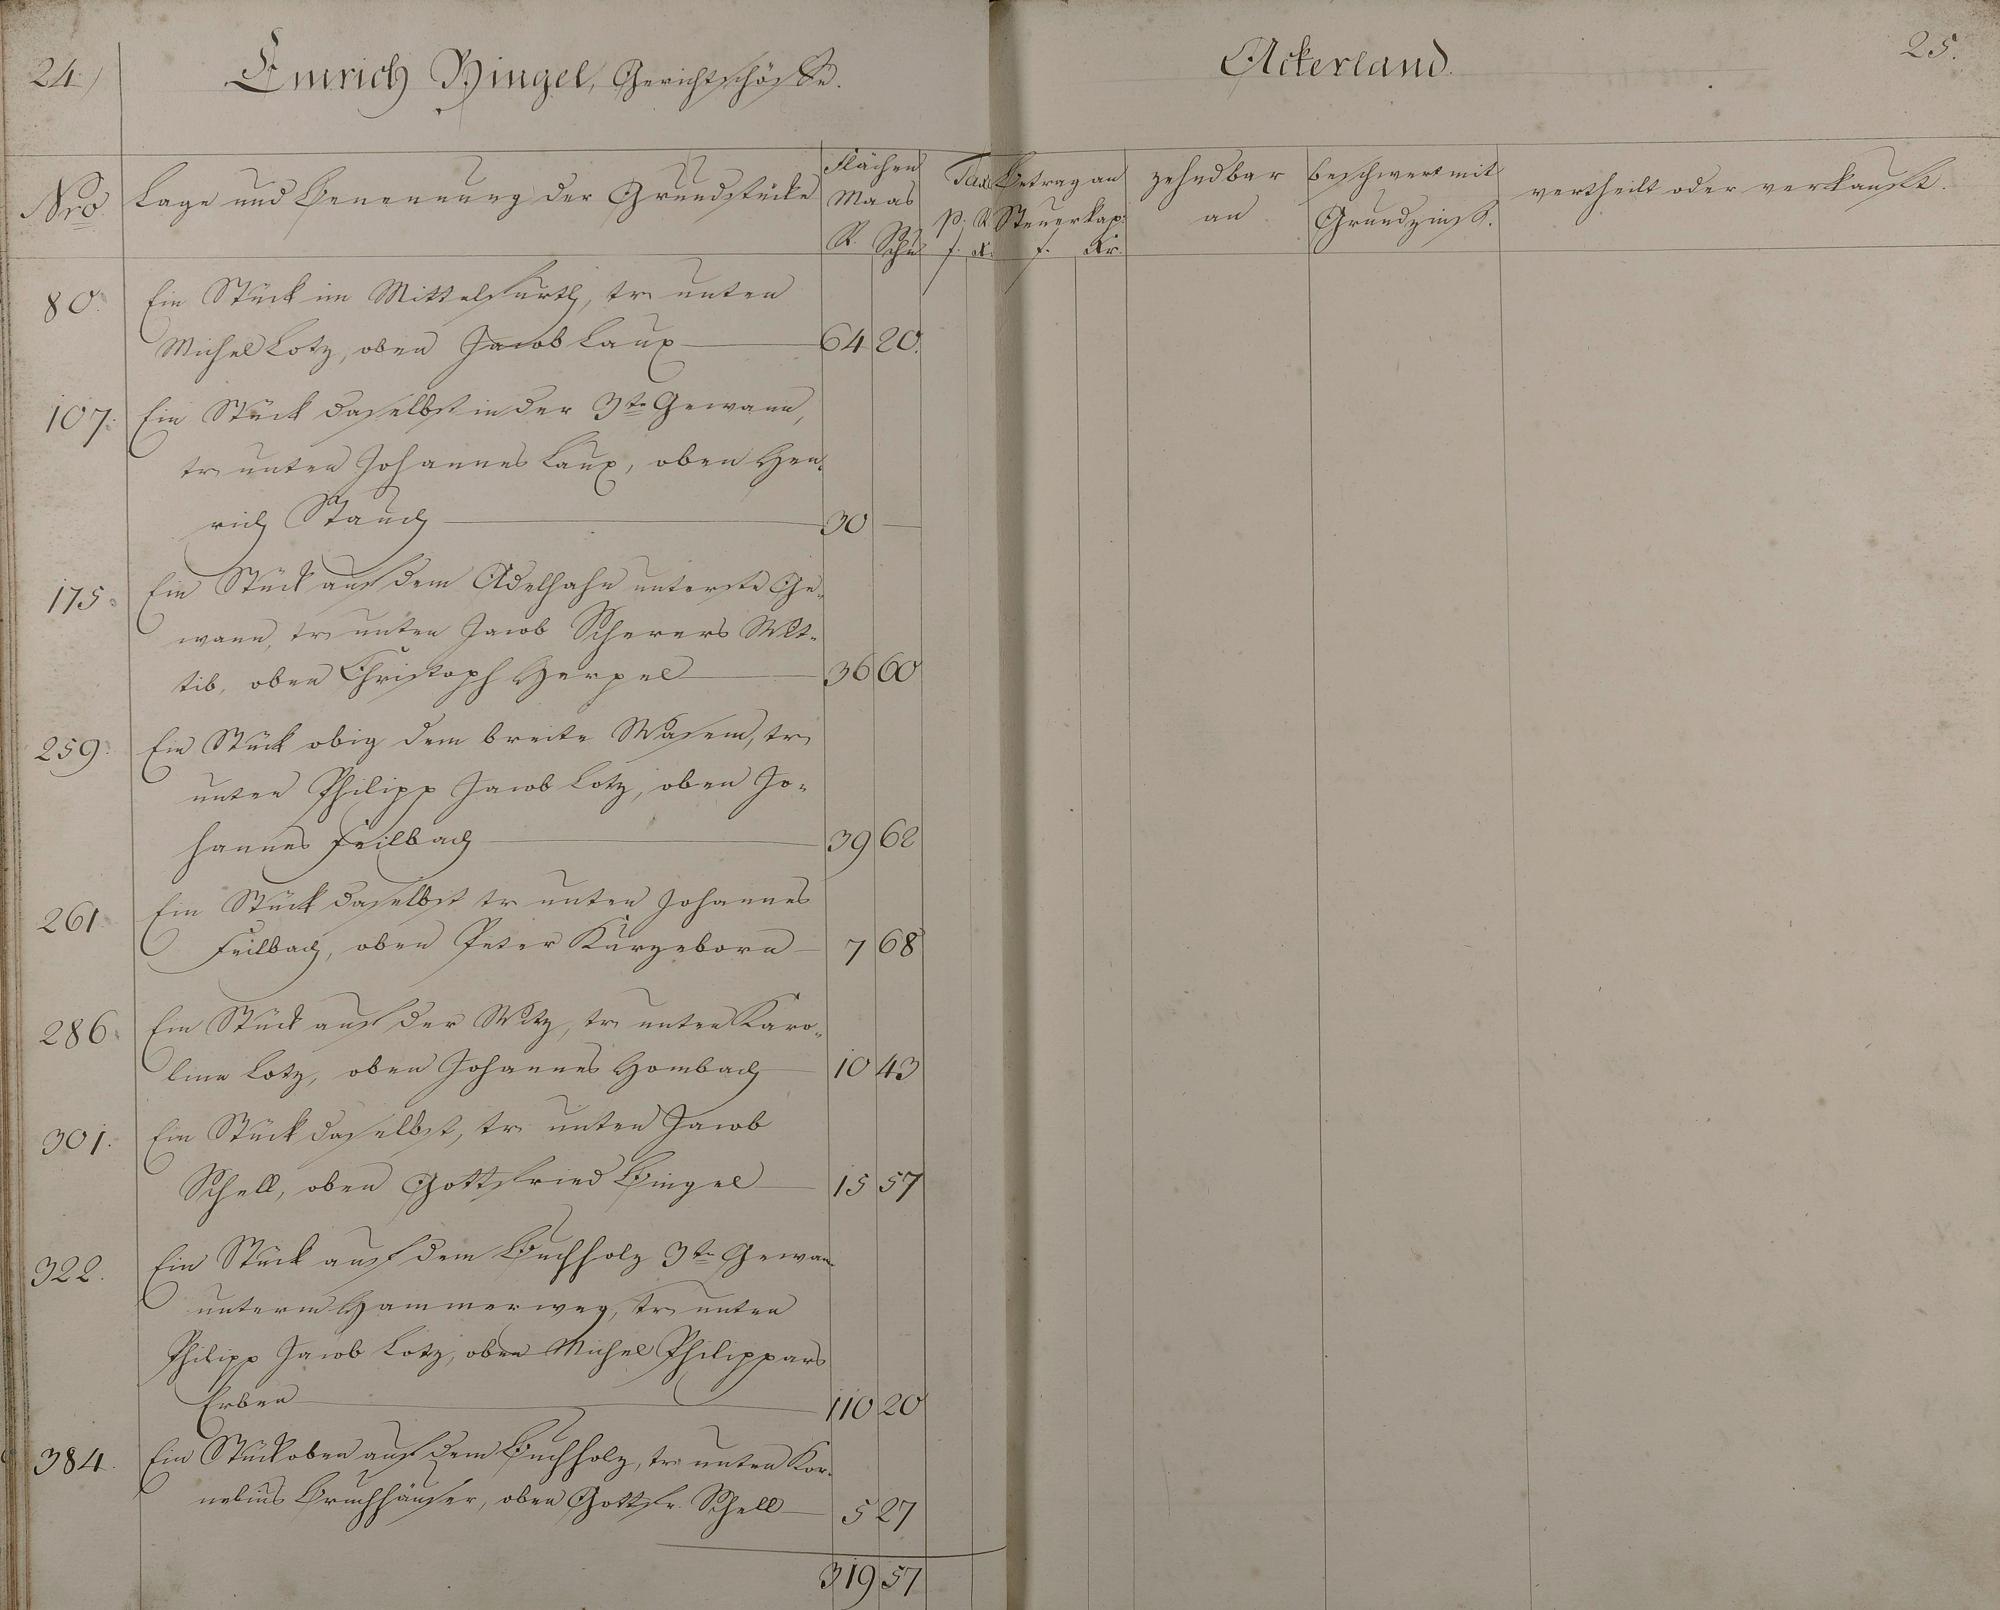 24.)
Emrich Bingel, Gerichtschöffe.
Ackerland.
25.
Nro
Lage und Benennung der Grundstücke
Flächen
Maas
R. Schu
Tax
p. R.
f. x.
Betrag an
Steuerkap:
f. Kr.
zehndbar
an
beschwert mit
Grundzinß.
vertheilt oder verkauft.
80. Ein Stück im Mittelfurth, tr. unten
Michel Lotz, oben Jacob Laux 64 20.
107. Ein Stück daselbst in der 3te Gewann,
tr. unten Johannes Laux, oben Hen-
rich Stauch 30 —
175. Ein Stück auf dem Adelhahn unterste Ge-
wann, tr. unten Jacob Scherers Wit-
tib, oben Christoph Herpel 36 60
259. Ein Stück obig dem breite Wasem, tr.
unten Philipp Jacob Lotz, oben Jo-
hannes Feilbach 39 62
261. Ein Stück daselbst tr. unten Johannes
Feilbach, oben Peter Kürzeborn 7 68
286. Ein Stück auf der Witz, tr. unten Karo-
line Lotz, oben Johannes Hombach 10 43
301. Ein Stück daselbst, tr. unten Jacob
Schell, oben Gottfried Bingel 15 57
322. Ein Stück auf dem Buchholz 3te Gewan
unterm Hammerweg, tr. unten
Philipp Jacob Lotz, oben Michel Philippars
Erben 110 20
384. Ein Stück oben auf dem Buchholz, tr. unten Kor-
nelius Bruchhäuser, oben Gottfr. Schell 5 27
319 57